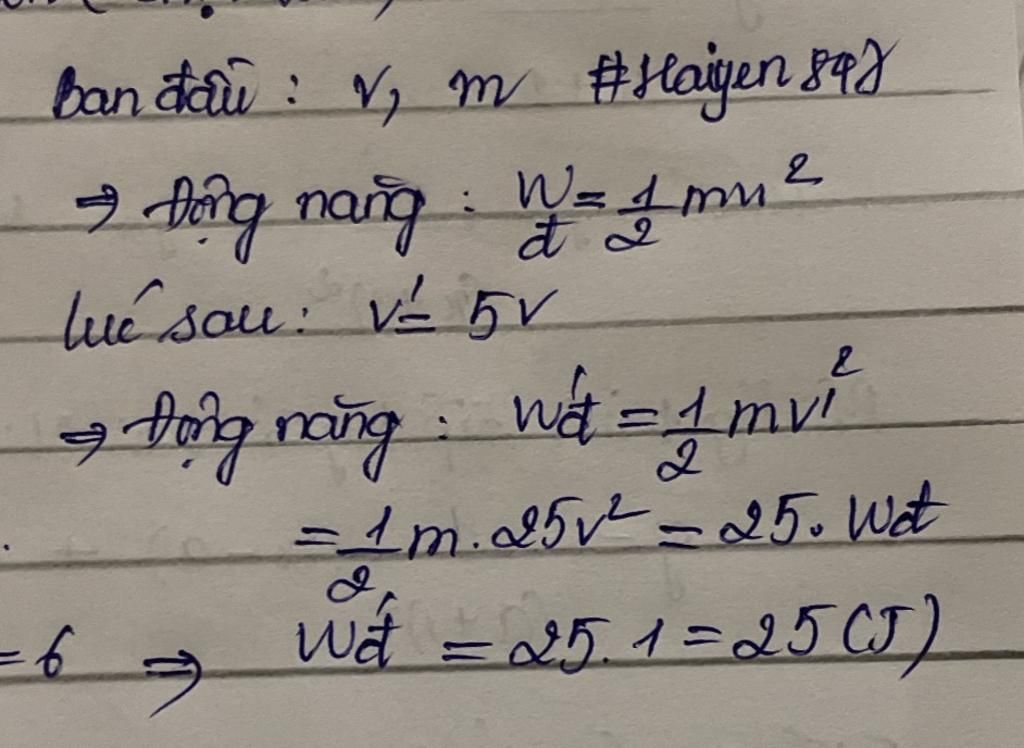 Ban đầu : v, m #Haiyen848
⇒ Động năng : Wđ = 1/2 mv²
lúc sau : v' = 5v
⇒ Động năng : W'đ = 1/2 mv'²
= 1/2 m . 25v² = 25 . Wđ
= 6 ⇒ W'đ = 25 . 1 = 25 (J)